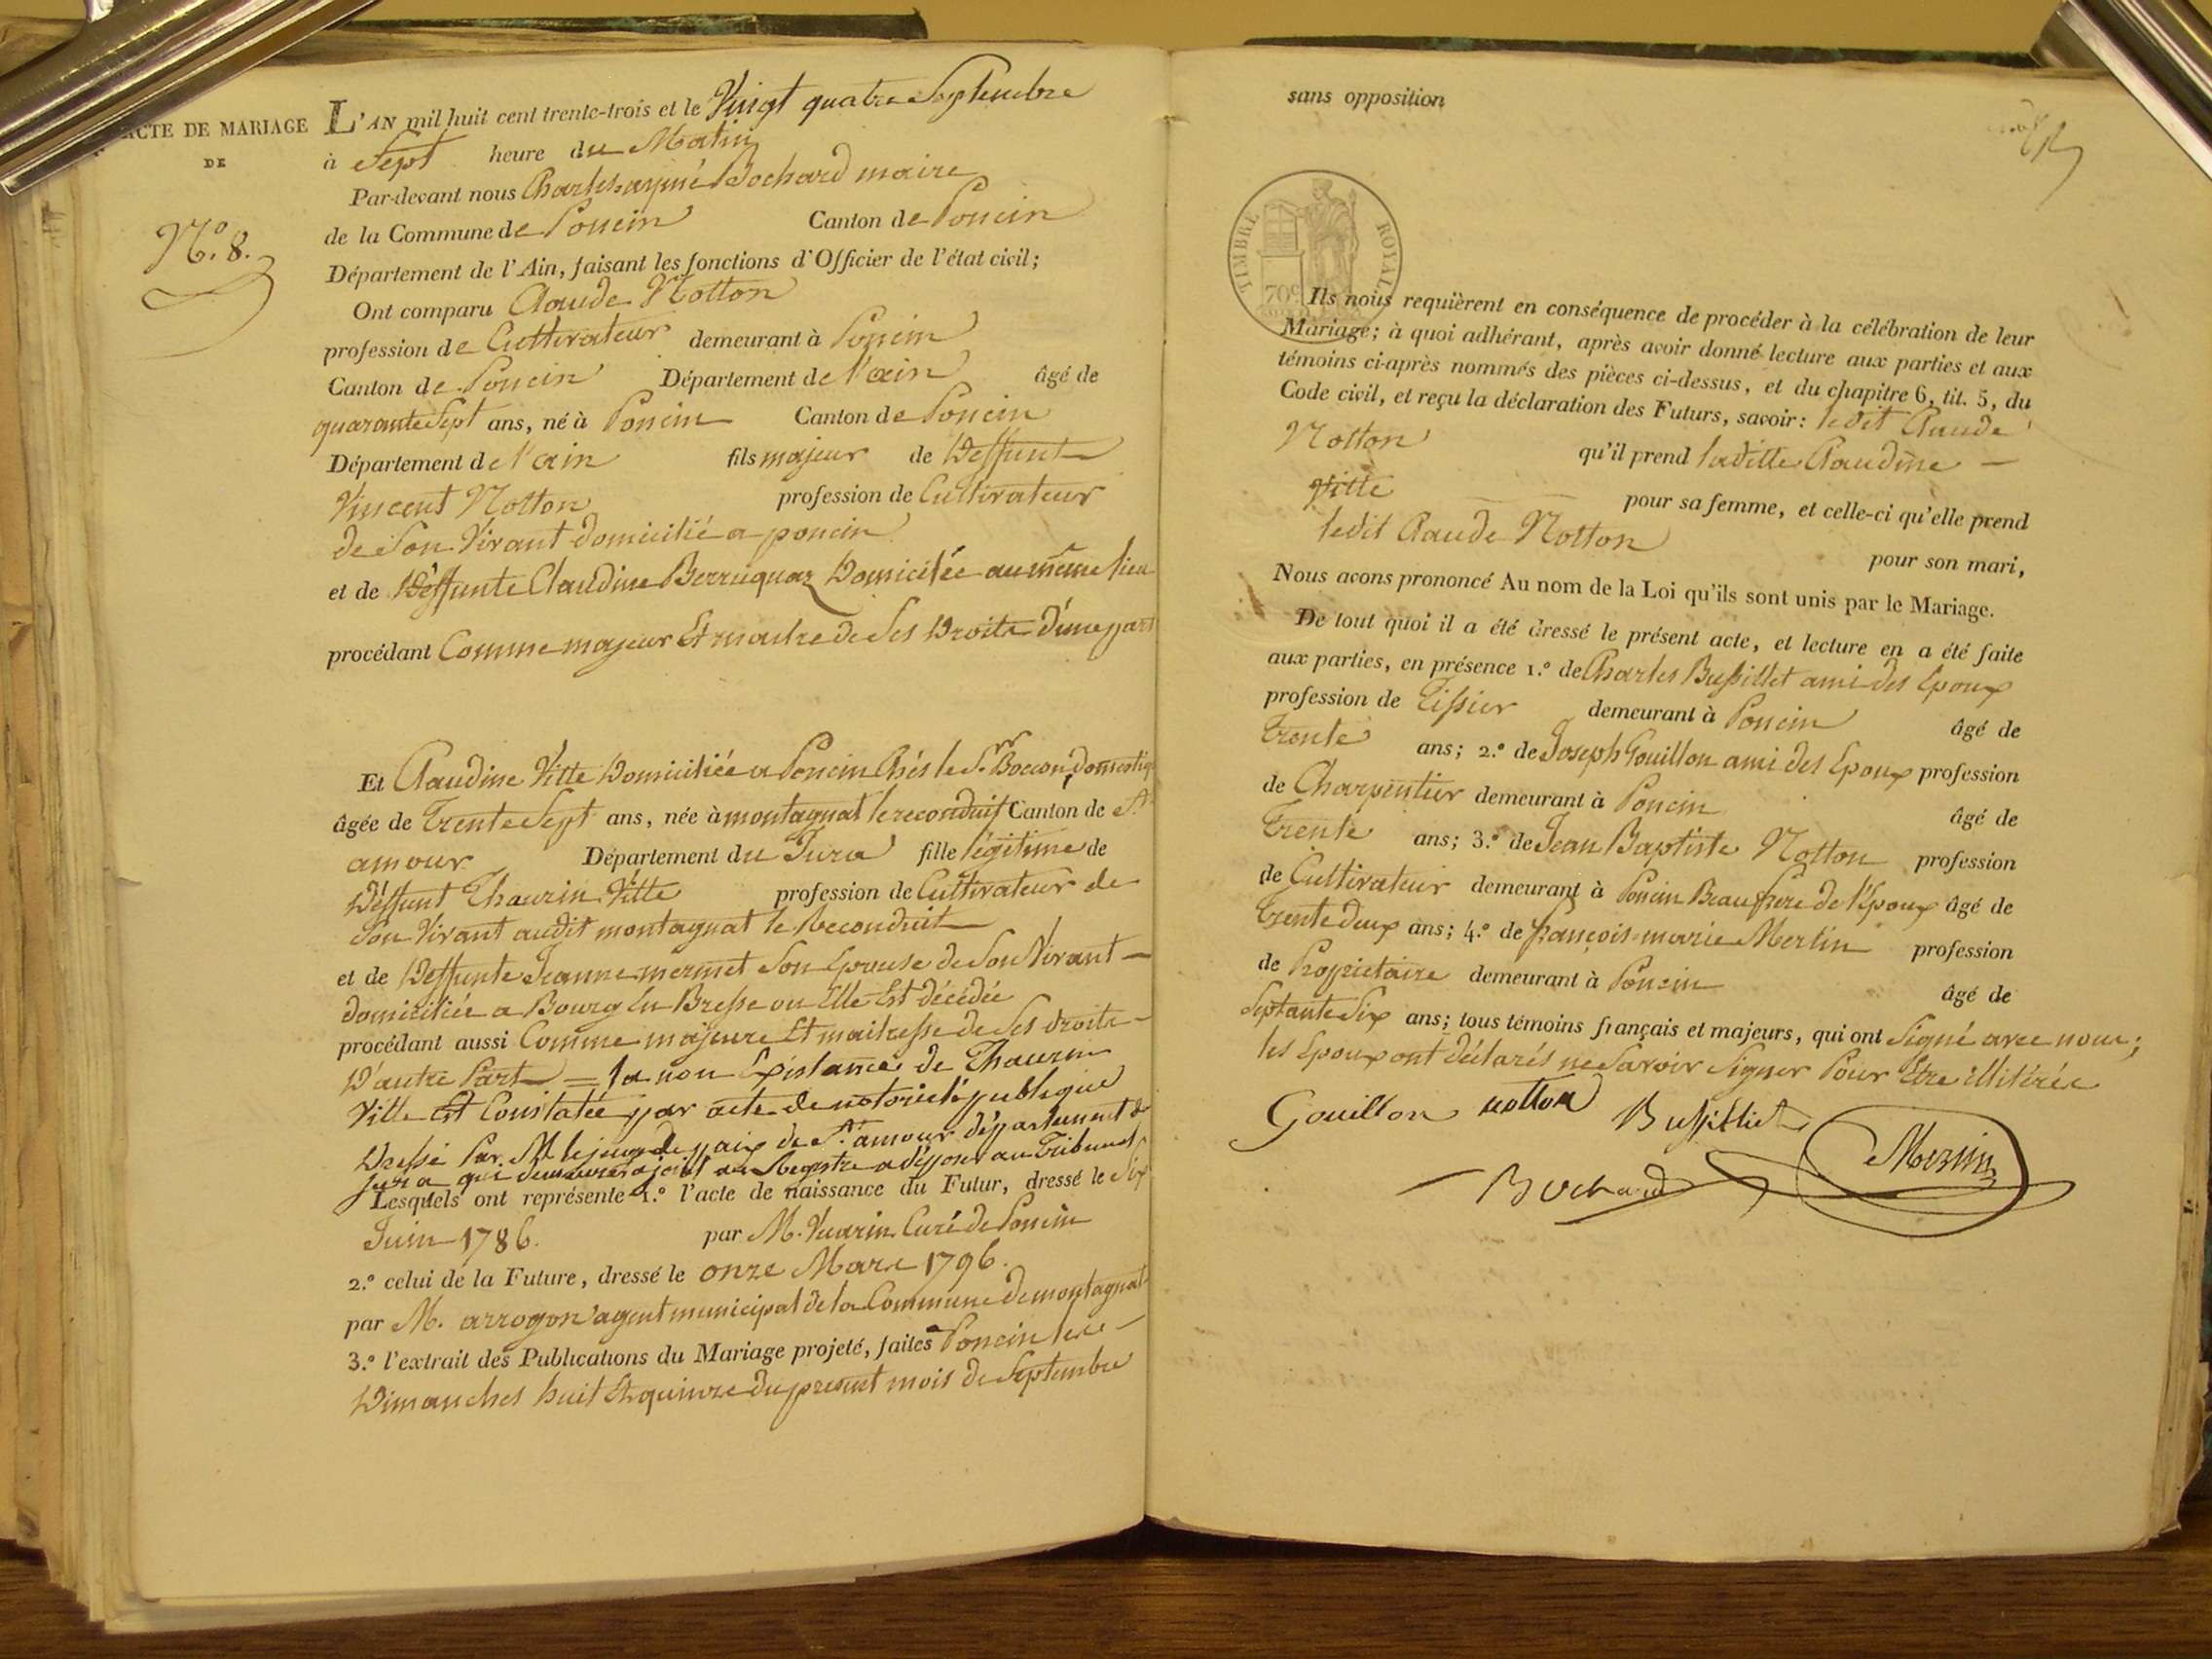 ACTE DE MARIAGE
DE
N.º 8.
L'AN mil huit cent trente-trois et le Vingt quatre Septembre
à Sept heure du Matin
Par-devant nous Charles aymé Bochard maire
de la Commune de Poncin Canton de Poncin
Département de l'Ain, faisant les fonctions d'Officier de l'état civil;
Ont comparu Claude Notton
profession de Cultivateur demeurant à Poncin
Canton de Poncin Département de l'ain âgé de
quarante Sept ans, né à Poncin Canton de Poncin
Département de l'ain fils majeur de Deffunt
Vincent Notton profession de Cultivateur
de Son Vivant domicilié a poncin
et de Deffunte Claudine Berruquaz Domicilée au même lieu
procédant Comme majeur Et maitre de Ses Droits d'une part
Et Claudine Vitte Domiciliée a Poncin Chés le Sr Boccon, domestiq
âgée de Trente Sept ans, née à montagnat le reconduit Canton de St
amour Département du Jura fille légitime de
Déffunt Thaurin Vitte profession de Cultivateur de
Son Vivant audit montagnat le Reconduit
et de Deffunte Jeanne mermet Son Epouse de Son Vivant
domiciliée a Bourg En Bresse ou Elle Est décédée
procédant aussi Comme majeure Et maitresse de Ses droits
D'autre Part = la non Existance de Thaurin
Vitte Est Constatée par acte de notoriété publique
Dressé Par M le juge de paix de St amour département du
Jura qui demeurera joint au Registre a déposer au Tribunal
Lesquels ont représenté 1.º l'acte de naissance du Futur, dressé le Six
Juin 1786. par M. Vuarin Curé de Poncin
2.º celui de la Future, dressé le onze Mars 1796.
par M. arrogon agent municipal de la Commune de montagnat
3.º l'extrait des Publications du Mariage projeté, faites a Poncin les
Dimanches huit Et quinze du present mois de Septembre
sans opposition
TIMBRE ROYAL
70c
Ils nous requièrent en conséquence de procéder à la célébration de leur
Mariage; à quoi adhérant, après avoir donné lecture aux parties et aux
témoins ci-après nommés des pièces ci-dessus, et du chapitre 6, tit. 5, du
Code civil, et reçu la déclaration des Futurs, savoir: ledit Claude
Notton qu'il prend laditte Claudine
Vitte pour sa femme, et celle-ci qu'elle prend
ledit Claude Notton pour son mari,
Nous avons prononcé Au nom de la Loi qu'ils sont unis par le Mariage.
De tout quoi il a été dressé le présent acte, et lecture en a été faite
aux parties, en présence 1.º de Charles Bussillet ami des Epoux
profession de Tissier demeurant à Poncin âgé de
Trente ans; 2.º de Joseph Gouillon ami des Epoux profession
de Charpentier demeurant à Poncin âgé de
Trente ans; 3.º de Jean Baptiste Notton profession
de Cultivateur demeurant à Poncin Beaufrere de l'Epoux âgé de
Trente deux ans; 4.º de françois-marie Merlin profession
de Propriétaire demeurant à Poncin âgé de
Septante Six ans; tous témoins français et majeurs, qui ont Signé avec nous;
les Epoux ont déclarés ne Savoir Signer Pour Etre illitérés
Gouillon notton Bussilliet
Bochard Merlin